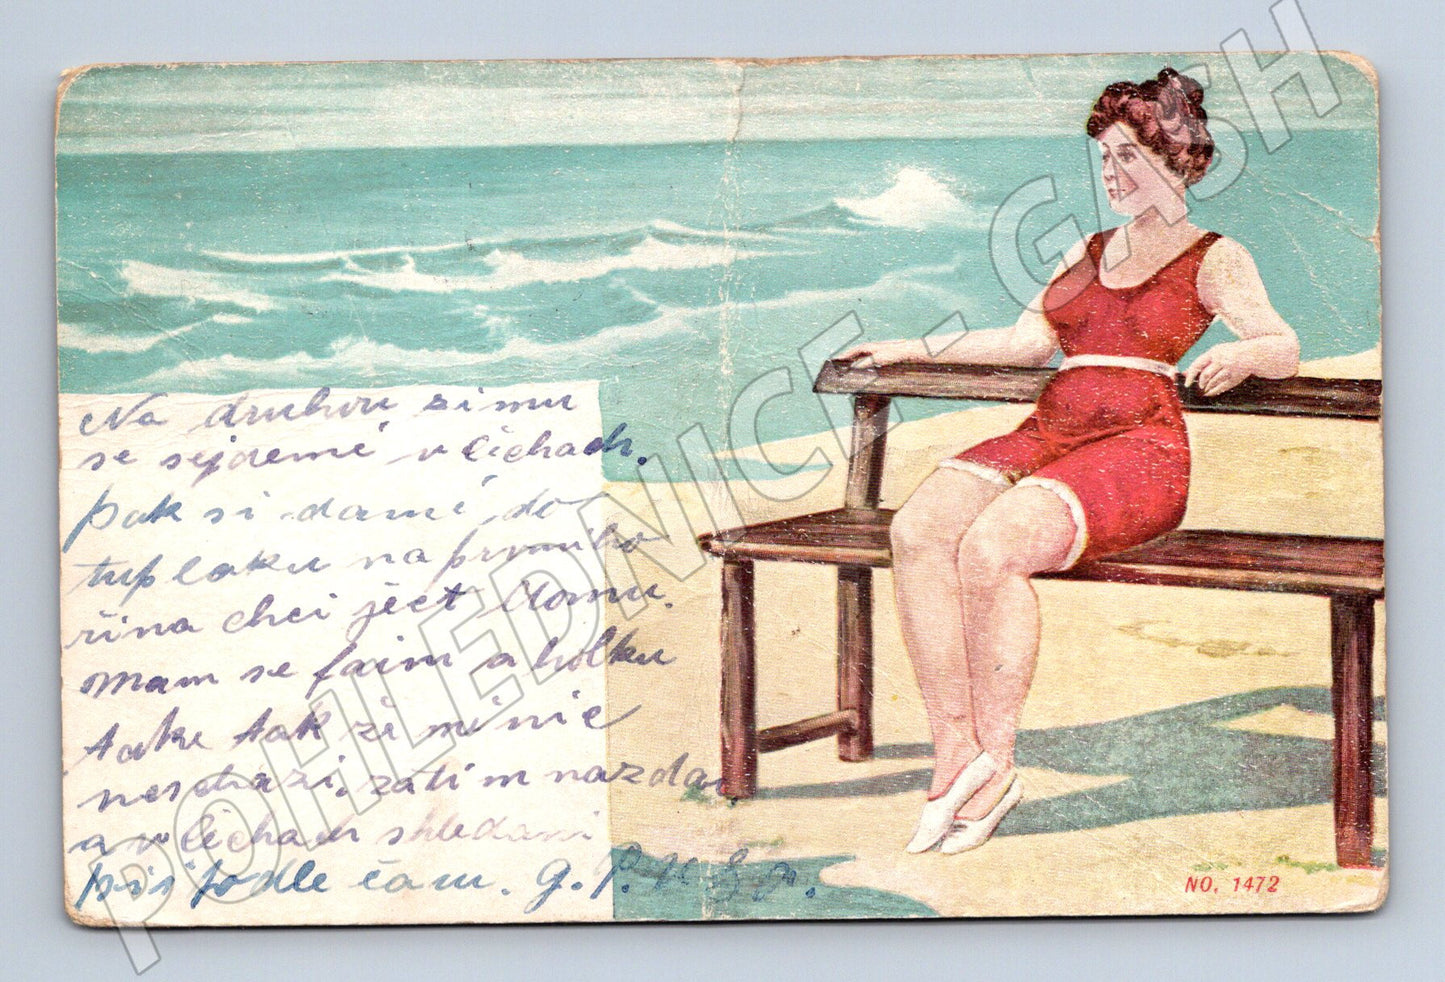 Na druhou zimu
se sejdemé v Čechach.
pak si damé do
tuplaku na prvniho
řina chci ject domu.
Mam se fain a holku
take tak že mi nic
neschazi. zatim nazdar
a v Čechach shledani
piš podle čam. g. P.
NO. 1472
POHLEDNICE - GASH